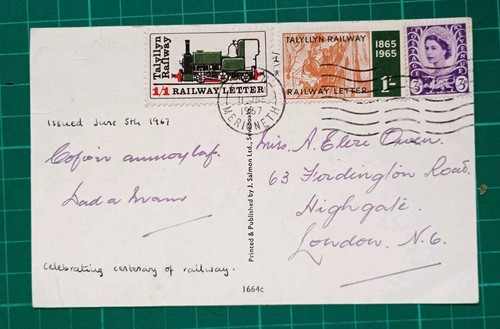 Talyllyn
Railway
1/1 RAILWAY LETTER
TALYLLYN RAILWAY
RAILWAY LETTER
1865
1965
1/-
3D
1967
MERIONETH
Issued June 5th 1967
Cofion annwylaf
Dad a Mam
Celebrating centenary of railway.
Printed & Published by J. Salmon Ltd.,
1664c
Miss. A. Eleri Owen.
63 Fordington Road.
Highgate.
London. N.6.